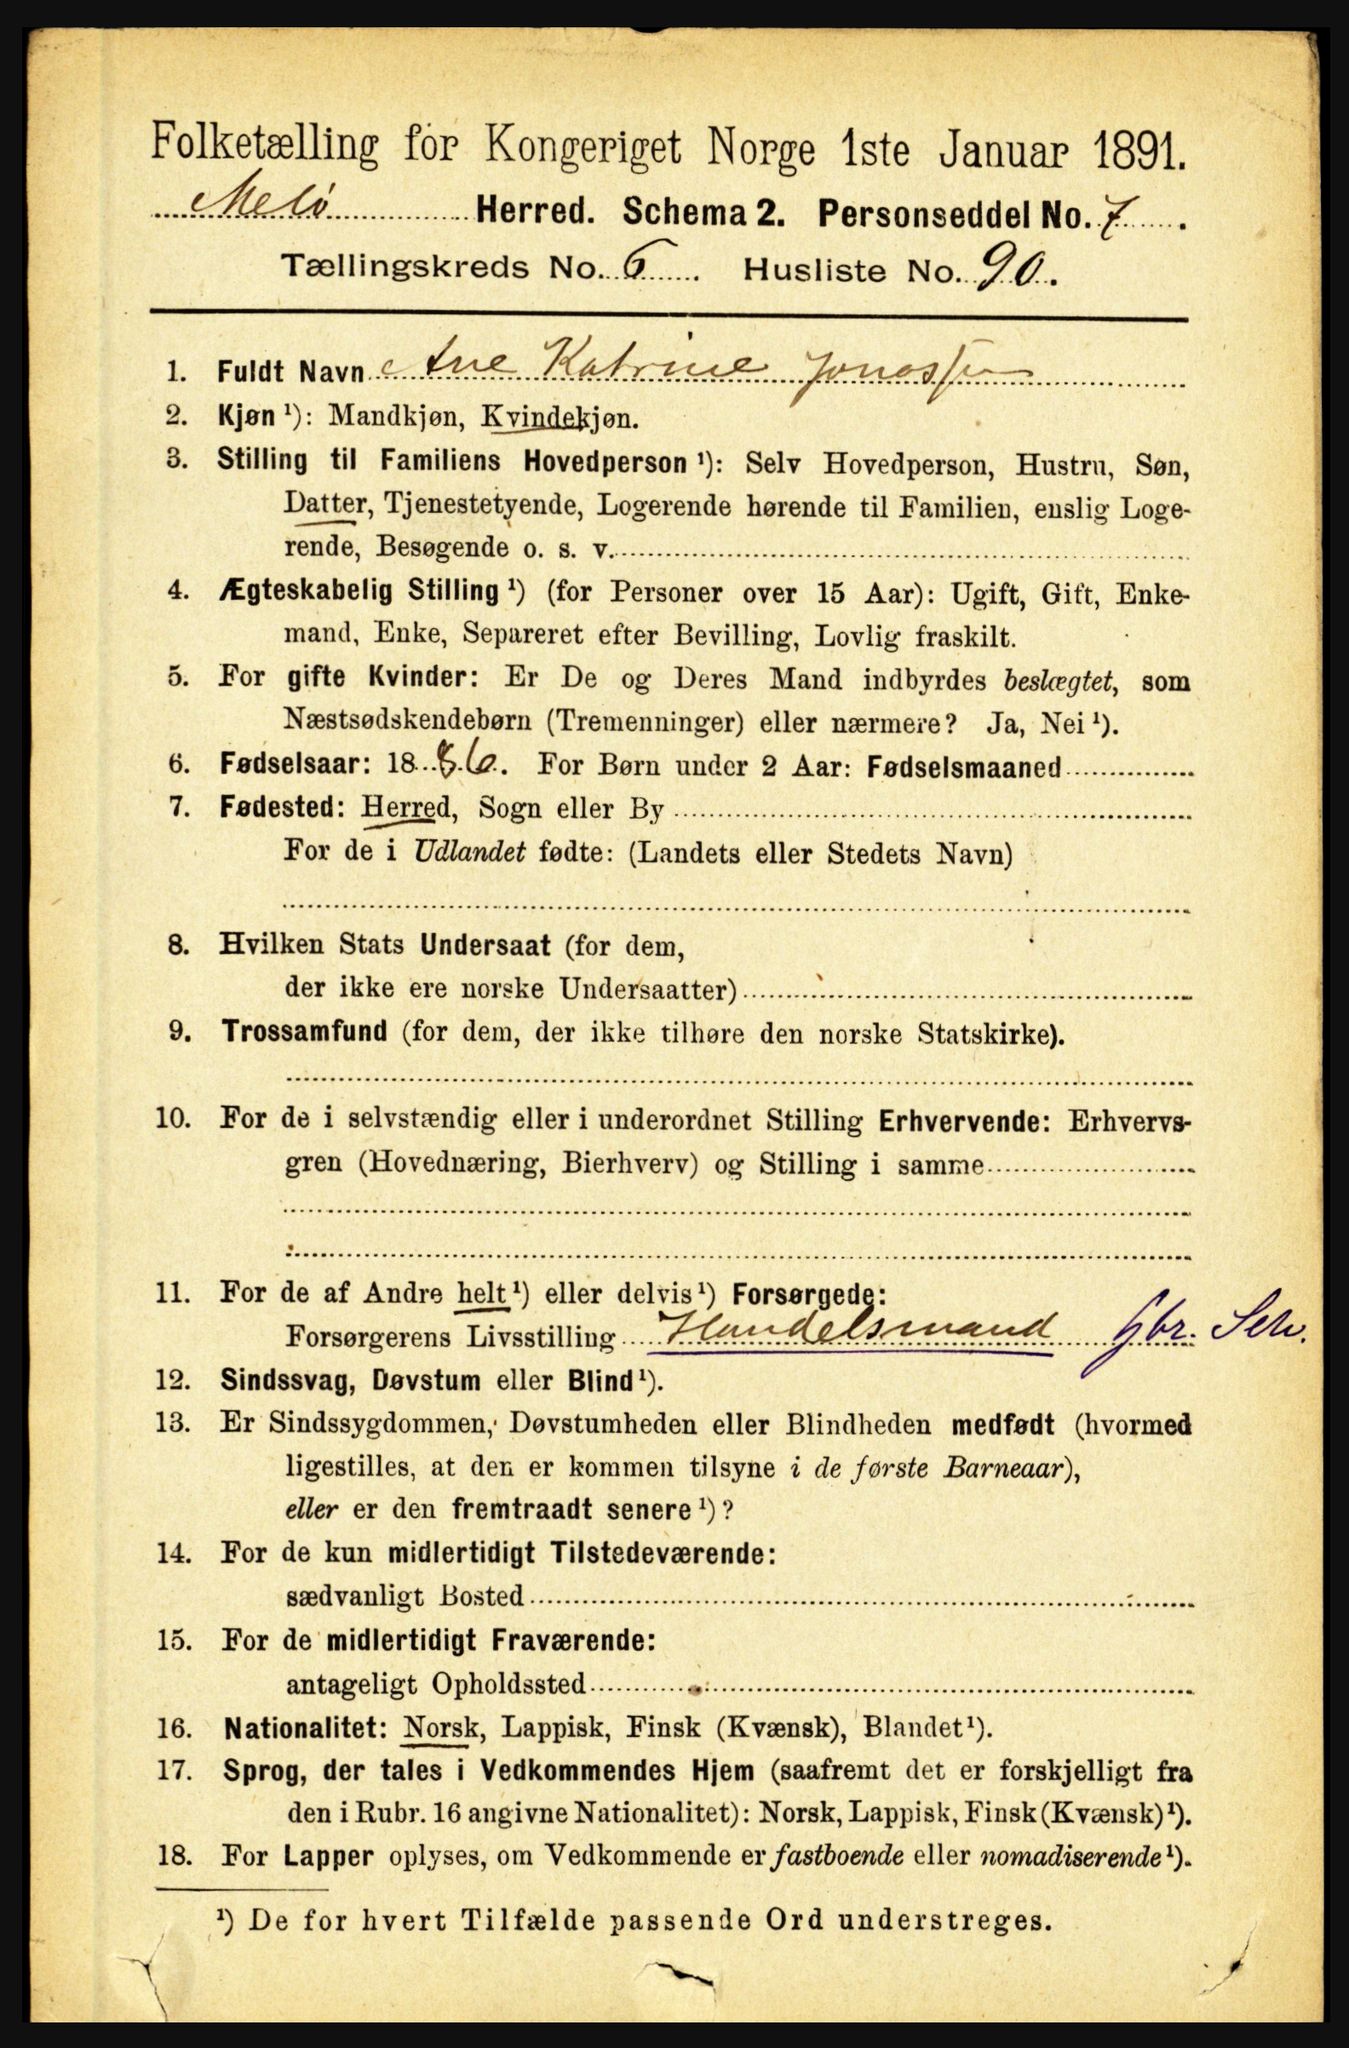 Folketælling for Kongeriget Norge 1ste Januar 1891.
Melø Herred. Schema 2. Personseddel No. 7.
Tællingskreds No. 6. Husliste No. 90.
1. Fuldt Navn Ane Katrine Jonassen
2. Kjøn ¹): Mandkjøn, Kvindekjøn.
3. Stilling til Familiens Hovedperson ¹): Selv Hovedperson, Hustru, Søn,
Datter, Tjenestetyende, Logerende hørende til Familien, enslig Loge-
rende, Besøgende o. s. v.
4. Ægteskabelig Stilling ¹) (for Personer over 15 Aar): Ugift, Gift, Enke-
mand, Enke, Separeret efter Bevilling, Lovlig fraskilt.
5. For gifte Kvinder: Er De og Deres Mand indbyrdes beslægtet, som
Næstsødskendebørn (Tremenninger) eller nærmere? Ja, Nei ¹).
6. Fødselsaar: 1886. For Børn under 2 Aar: Fødselsmaaned
7. Fødested: Herred, Sogn eller By
For de i Udlandet fødte: (Landets eller Stedets Navn)
8. Hvilken Stats Undersaat (for dem,
der ikke ere norske Undersaatter)
9. Trossamfund (for dem, der ikke tilhøre den norske Statskirke).
10. For de i selvstændig eller i underordnet Stilling Erhvervende: Erhvervs-
gren (Hovednæring, Bierhverv) og Stilling i samme
11. For de af Andre helt ¹) eller delvis ¹) Forsørgede:
Forsørgerens Livsstilling Handelsmand Gbr. Selv.
12. Sindssvag, Døvstum eller Blind ¹).
13. Er Sindssygdommen, Døvstumheden eller Blindheden medfødt (hvormed
ligestilles, at den er kommen tilsyne i de første Barneaar),
eller er den fremtraadt senere ¹)?
14. For de kun midlertidigt Tilstedeværende:
sædvanligt Bosted
15. For de midlertidigt Fraværende:
antageligt Opholdssted
16. Nationalitet: Norsk, Lappisk, Finsk (Kvænsk), Blandet ¹).
17. Sprog, der tales i Vedkommendes Hjem (saafremt det er forskjelligt fra
den i Rubr. 16 angivne Nationalitet): Norsk, Lappisk, Finsk (Kvænsk) ¹).
18. For Lapper oplyses, om Vedkommende er fastboende eller nomadiserende ¹).
¹) De for hvert Tilfælde passende Ord understreges.